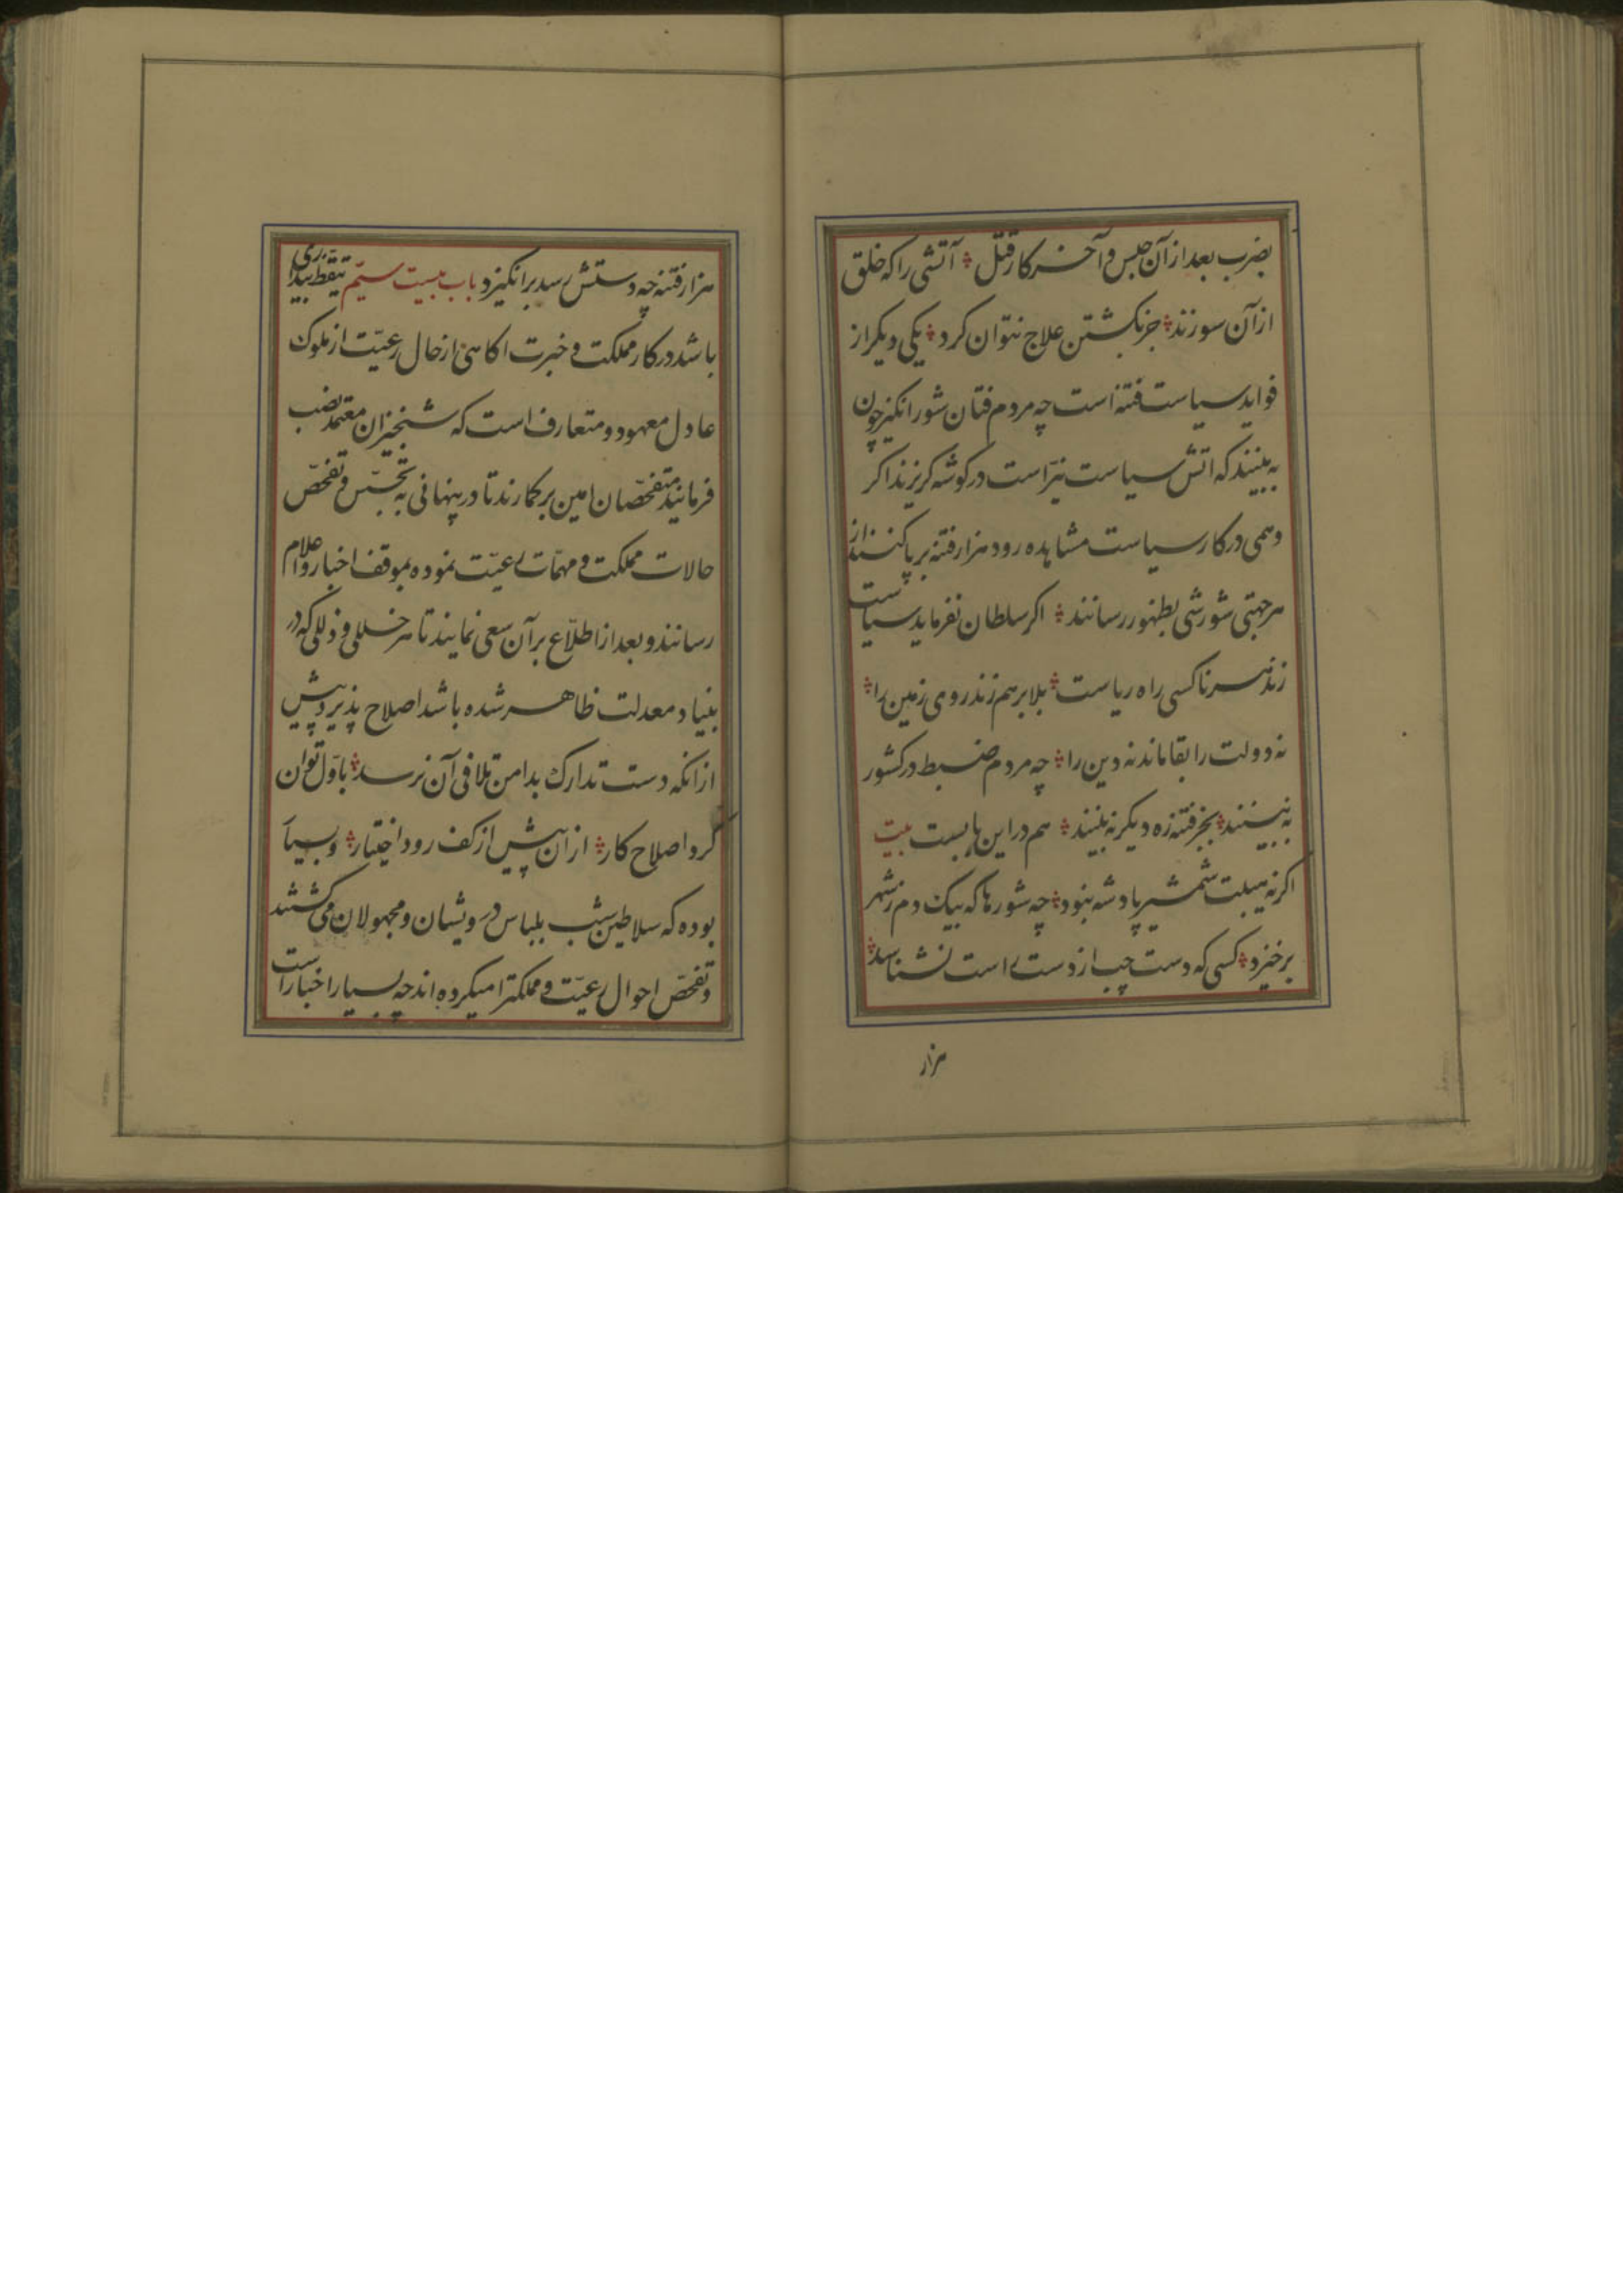 بضرب بعد از آن حبس و آخر کار قتل آتشی را که خلق
از آن سوزند جز بکشتن علاج نتوان کرد یکی دیکر از
فواید سیاست فتنه است چه مردم فتان شور انکیز چون
به بینند که اتش سیاست تیز است در کوشه کریزند اکر
وهمی در کار سیاست مشاهده رود هزار فتنه برپا کنند از
هر جهتی شورشی بظهور رسانند اکر سلطان نفرماید سیاست
زند هر ناکسی راه ریاست بلا بر هم زند روی زمین را
نه دولت را بقا ماند نه دین را چه مردم ضبط در کشور
نه بینند بجز فتنه ره دیکر نه بینند هم در این باب است بیت
اکر نه هیبت شمشیر پادشه نبود چه شورها که بیک دم ز شهر
بر خیزد کسی که دست چپ از دست راست نشناسد
هزار
هزار فتنه چه دستش رسد بر انکیزد باب بیست سیّم تیقظ بیداری
باشد در کار مملکت و خبرت اکاهی از حال رعیّت از ملوک
عادل معهود و متعارف است که معتمد نصب
فرمایند متفحّصان امین بر کمارند تا در پنهانی به تجسّس و تفحّص
حالات مملکت و مهمّات رعیّت نموده بموقف اخبار و اعلام
رسانند و بعد از اطلّاع بر آن سعی نمایند تا هر خللی و ذللی که در
بنیاد معدلت ظاهر شده باشد اصلاح پذیرد پیش
از انکه دست تدارک بدامن تلافی آن نرسد باوّل توان
کرد اصلاح کار از ان پیش از کف رود اختیار و بسیار
بوده که سلاطین شب بلباس درویشان و مجهولان می کشتند
و تفحّص احوال رعیّت و مملکترا میکرده اند چه بسیار اخبار است